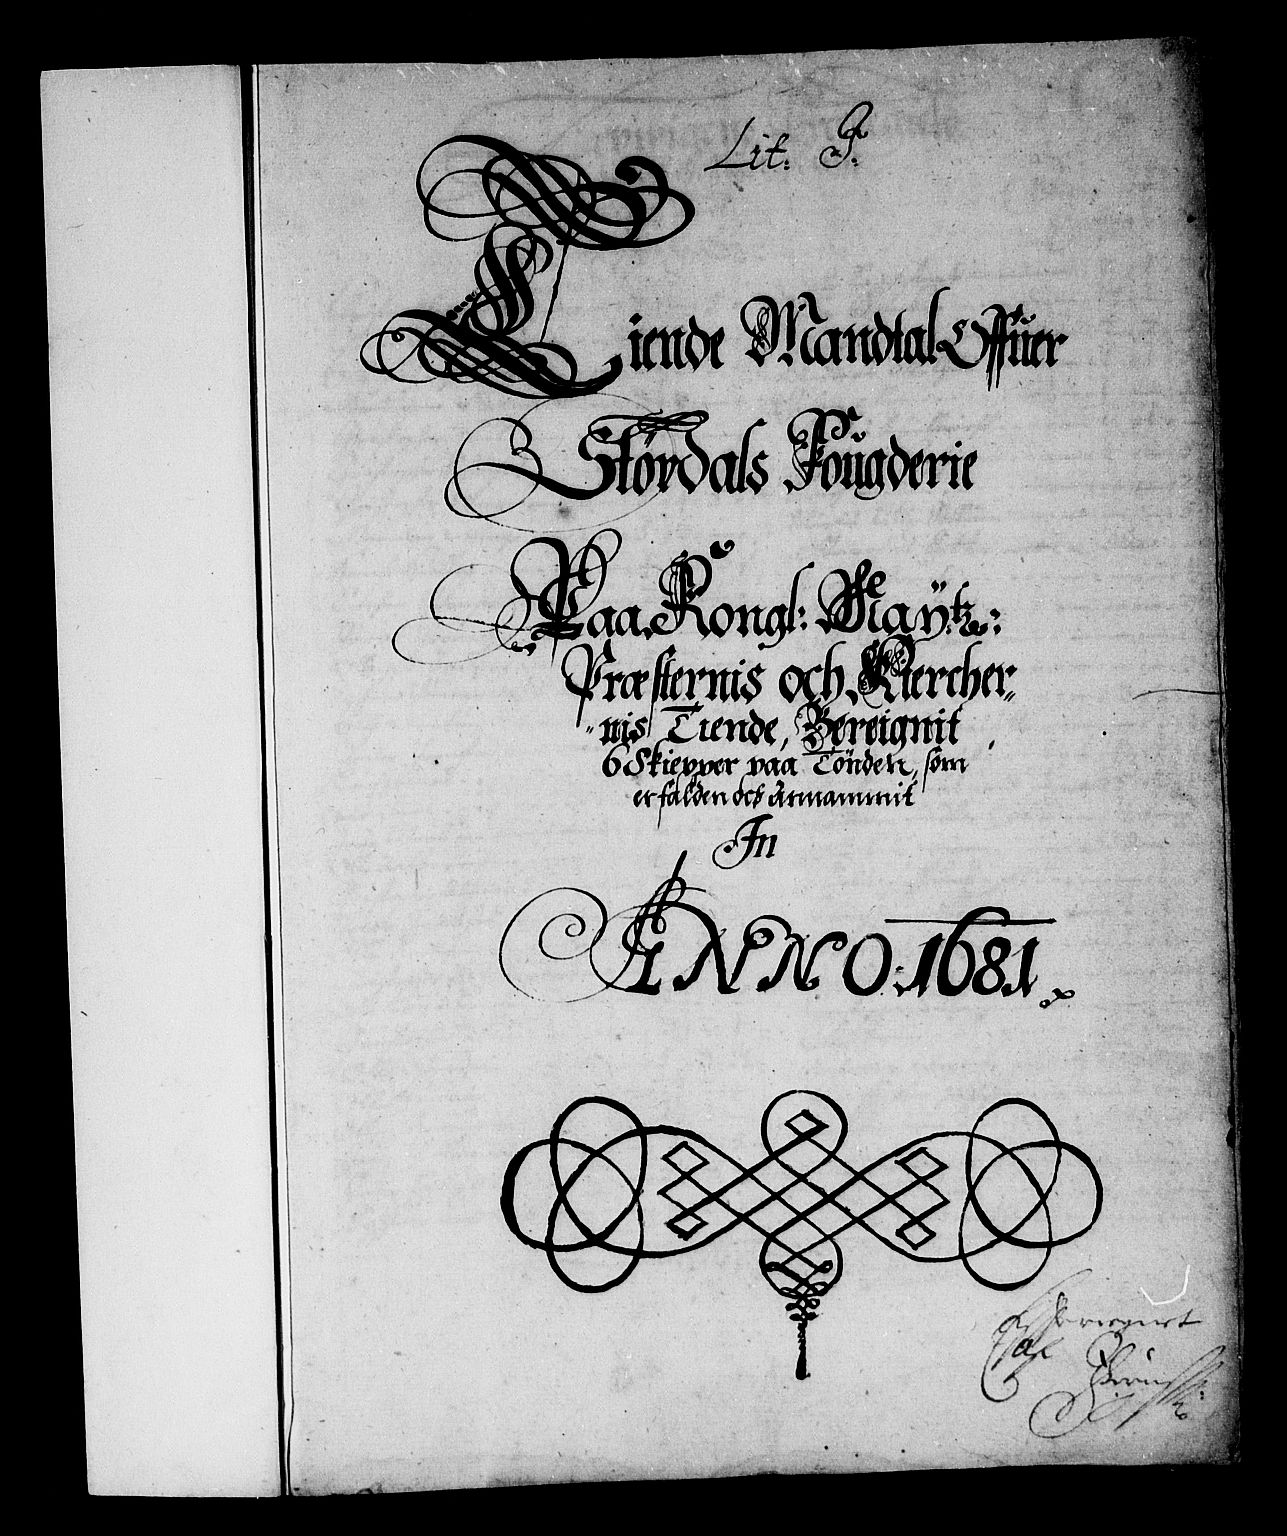 Lit: F:
Tiende Mandtal Offuer
Stördals Fougderie
Paa Kongl: Maÿtz:
Præsternis och Kiercher,,
,,nis Tiende, Bereignit
6 Skiepper paa Tönden, som
er falden och Annammit
In
ANNO. 1681.